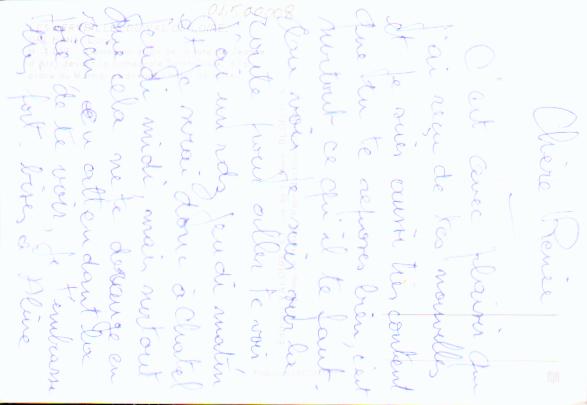 Chère Renée
C'est avec plaisir que
j'ai reçu de tes nouvelles
et je suis aussi très content
que tu te reposes bien, c'est
surtout ce qu'il te faut.
voir je suis sur la
route pour aller te voir
J'ai un rdz jeudi matin
et je serai donc à Chatel
Jeudi midi mais surtout
que cela ne te dérange en
rien. En attendant la
joie de te voir, je t'embrasse
très fort. bises à Aline